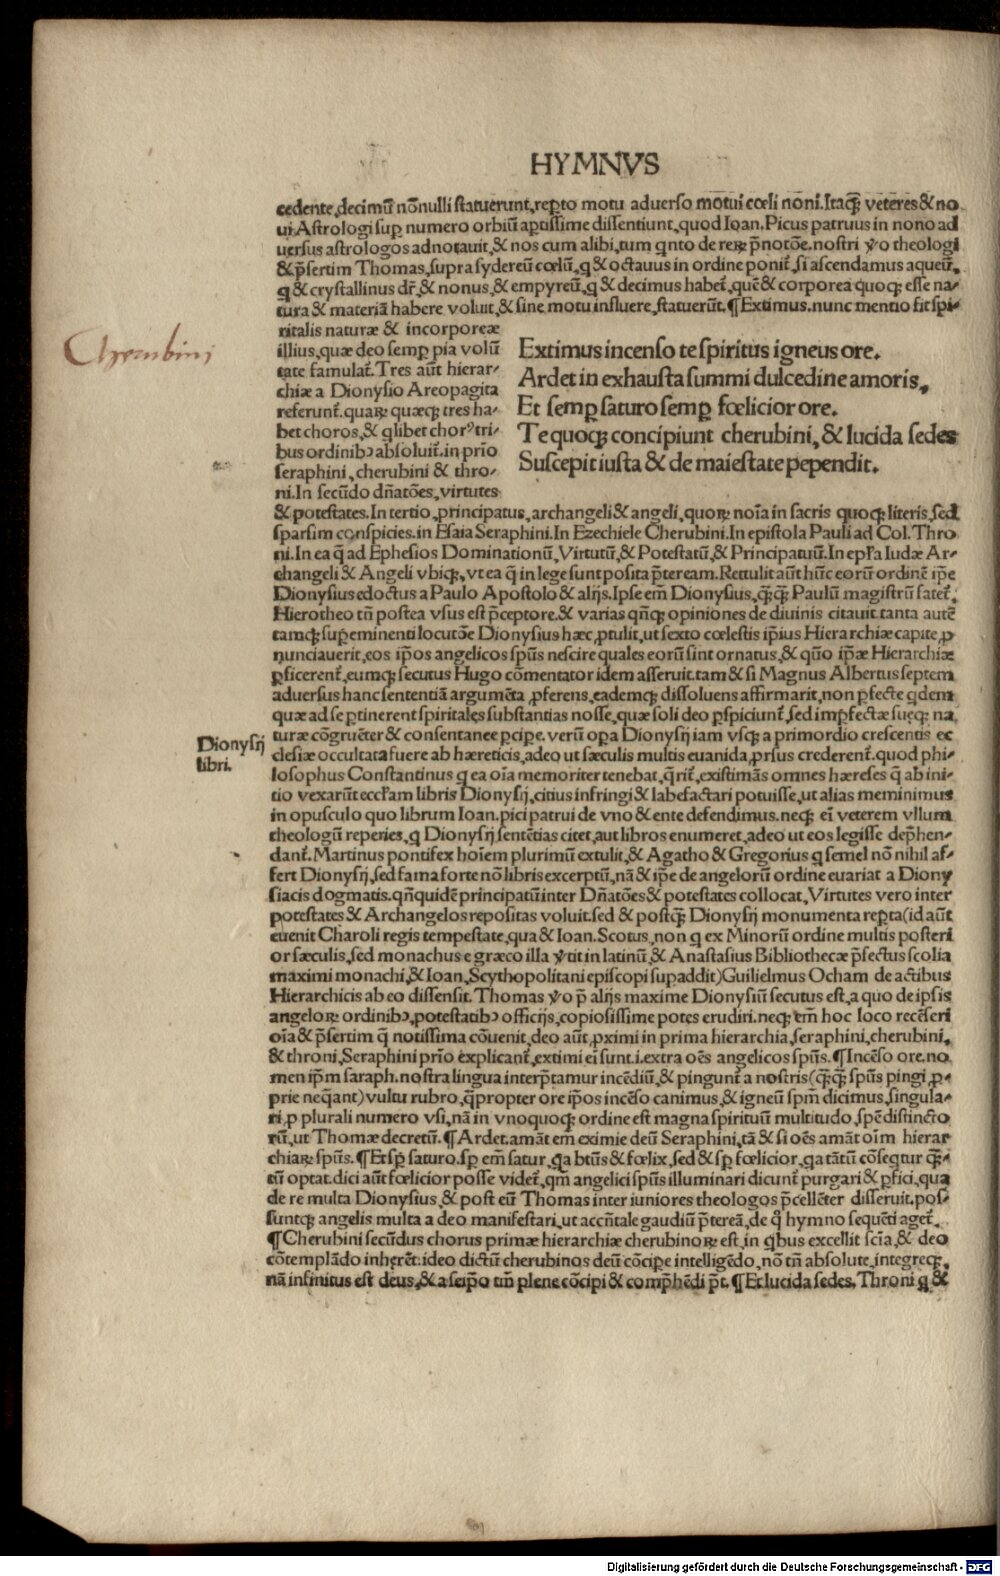 HYMNVS
cedente, decimū nōnulli statuerunt, repto motu aduerso motui cœli noni. Itaq; veteres & no
ui Astrologi sup numero orbiū aptissime dissentiunt, quod Ioan. Picus patruus in nono ad
uersus astrologos adnotauit, & nos cum alibi, tum qnto de reꝝ p̄notōe. nostri ỽo theologi
& p̄sertim Thomas, supra sydereū cœlū, q & octauus in ordine ponit̄, si ascendamus aqueū,
q & crystallinus dr̄, & nonus, & empyreū, q & decimus habet̄, quē & corporea quoq; esse na-
tura & materiā habere voluit, & sine motu influere, statuerūt. ¶ Extimus. nunc mentio fit spi-
ritalis naturæ & incorporeæ
illius, quæ deo semp pia volū
tate famulat̄. Tres aūt hierar-
chiæ a Dionysio Areopagita
referunt̄. quaꝝ quæq; tres ha-
bet choros, & qlibet chorꝰ tri-
bus ordinibꝰ absoluit̄. in prīo
seraphini, cherubini & thro-
ni. In secūdo dn̄atōes, virtutes
Extimus incenso te spiritus igneus ore.
Ardet in exhausta summi dulcedine amoris,
Et semp saturo semp fœlicior ore.
Te quoq; concipiunt cherubini, & lucida sedes
Suscepit iusta & de maiestate pependit.
Cherubini
& potestates. In tertio, principatus, archangeli & angeli, quoꝝ noīa in sacris quoq; literis, sed
sparsim conspicies. in Esaia Seraphini. In Ezechiele Cherubini. In epistola Pauli ad Col. Thro
ni. In ea q̄ ad Ephesios Dominationū, Virtutū, & Potestatū, & Principatuū. In epl̄a Iudæ Ar-
changeli & Angeli vbiq;, vt ea q̄ in lege sunt posita p̄teream. Retulit aūt hūc eorū ordinē ip̄e
Dionysius edoctus a Paulo Apostolo & alijs. Ipse em̄ Dionysius, q̄q̄ Paulū magistrū fatet̄,
Hierotheo tn̄ postea vsus est p̄ceptore, & varias qn̄q; opiniones de diuinis citauit. tanta autē
tamq; supeminenti locutōe Dionysius hæc ptulit, ut sexto cœlestis ip̄ius Hierarchiæ capite, p
nunciauerit, eos ip̄os angelicos spūs nescire quales eorū sint ornatus, & quō ip̄æ Hierarchiæ
pficerent̄, eumq; secutus Hugo cōmentator idem asseruit. tam & si Magnus Albertus septem
aduersus hanc sententiā argumēta pferens, eademq; dissoluens affirmarit, non pfecte qdem
quæ ad se ptinerent spiritales substantias nosse, quæ soli deo pspiciunt̄, sed impfectæ suęq; na
turæ cōgruēter & consentanee pcipe. verū opa Dionysij iam vsq; a primordio crescentis ec
Dionysij
libri.
clesiæ occultata fuere ab hæreticis, adeo ut sæculis multis euanida, prsus crederent̄. quod phi-
losophus Constantinus q ea oīa memoriter tenebat, q̄rit̄, existimās omnes hæreses q̄ ab ini-
tio vexarūt eccl̄am libris Dionysij, citius infringi & labefactari potuisse, ut alias meminimus
in opusculo quo librum Ioan. pici patrui de vno & ente defendimus. neq; eī veterem vllum
theologū reperies, q Dionysij sentētias citet, aut libros enumeret, adeo ut eos legisse dep̄hen-
dant̄. Martinus pontifex hoīem plurimū extulit, & Agatho & Gregorius q semel nō nihil af-
fert Dionysij, sed fama forte nō libris excerptū, nā & ip̄e de angelorū ordine euariat a Diony
siacis dogmatis. qn̄quidē principatū inter Dn̄atōes & potestates collocat, Virtutes vero inter
potestates & Archangelos repositas voluit. sed & postq̄; Dionysij monumenta repta (id aūt
euenit Charoli regis tempestate, qua & Ioan. Scotus, non q ex Minorū ordine multis posteri
or sæculis, sed monachus e græco illa ỽtit in latinū, & Anastasius Bibliothecæ p̄fectus scolia
maximi monachi, & Ioan. Scythopolitani episcopi supaddit) Guilielmus Ocham de actibus
Hierarchicis ab eo dissensit. Thomas ỽo p̄ alijs maxime Dionysiū secutus est, a quo de ipsis
angeloꝝ ordinibꝰ, potestatibꝰ officijs, copiosissime potes erudiri. neq; em̄ hoc loco recēseri
oīa & p̄sertim q̄ notissima cōuenit, deo aūt, pximi in prima hierarchia, seraphini, cherubini,
& throni, Seraphini prīo explicant̄, extimi eī sunt. i. extra oēs angelicos spūs. ¶ Incēso ore. no
men ip̄m saraph. nostra lingua interp̄tamur incēdiū, & pingunt̄ a nostris (q̄q̄; spūs pingi, p-
prie neq̄ant) vultu rubro, q̄propter ore ip̄os incēso canimus, & igneū spm̄ dicimus, singula-
ri, p plurali numero vsi, nā in vnoquoq; ordine est magna spirituū multitudo, spē distincto
rū, ut Thomæ decretū. ¶ Ardet. amāt em̄ eximie deū Seraphini, tā & si oēs amāt oīm hierar
chiaꝝ spūs. ¶ Et sp̄ saturo. sp̄ em̄ satur, qa btūs & fœlix, sed & sp̄ fœlicior, qa tātū cōseqtur q̄-
tū optat. dici aūt fœlicior posse videt̄, qm̄ angelici spūs illuminari dicunt̄ purgari & pfici, qua
de re multa Dionysius, & post eū Thomas inter iuniores theologos p̄cellēter disseruit. pos-
suntq; angelis multa a deo manifestari, ut accn̄tale gaudiū p̄tereā, de q̊ hymno sequēti aget̄.
¶ Cherubini secūdus chorus primæ hierarchiæ cherubinoꝝ est, in qbus excellit scīa, & deo
cōtemplādo inhęrēt: ideo dictū cherubinos deū cōcipe intelligēdo, nō tn̄ absolute, integreq;,
nā infinitus est deus, & a seip̄o tm̄ plene cōcipi & comp̄hēdi p̄t. ¶ Et lucida sedes, Throni q &
Digitalisierung gefördert durch die Deutsche Forschungsgemeinschaft - DFG